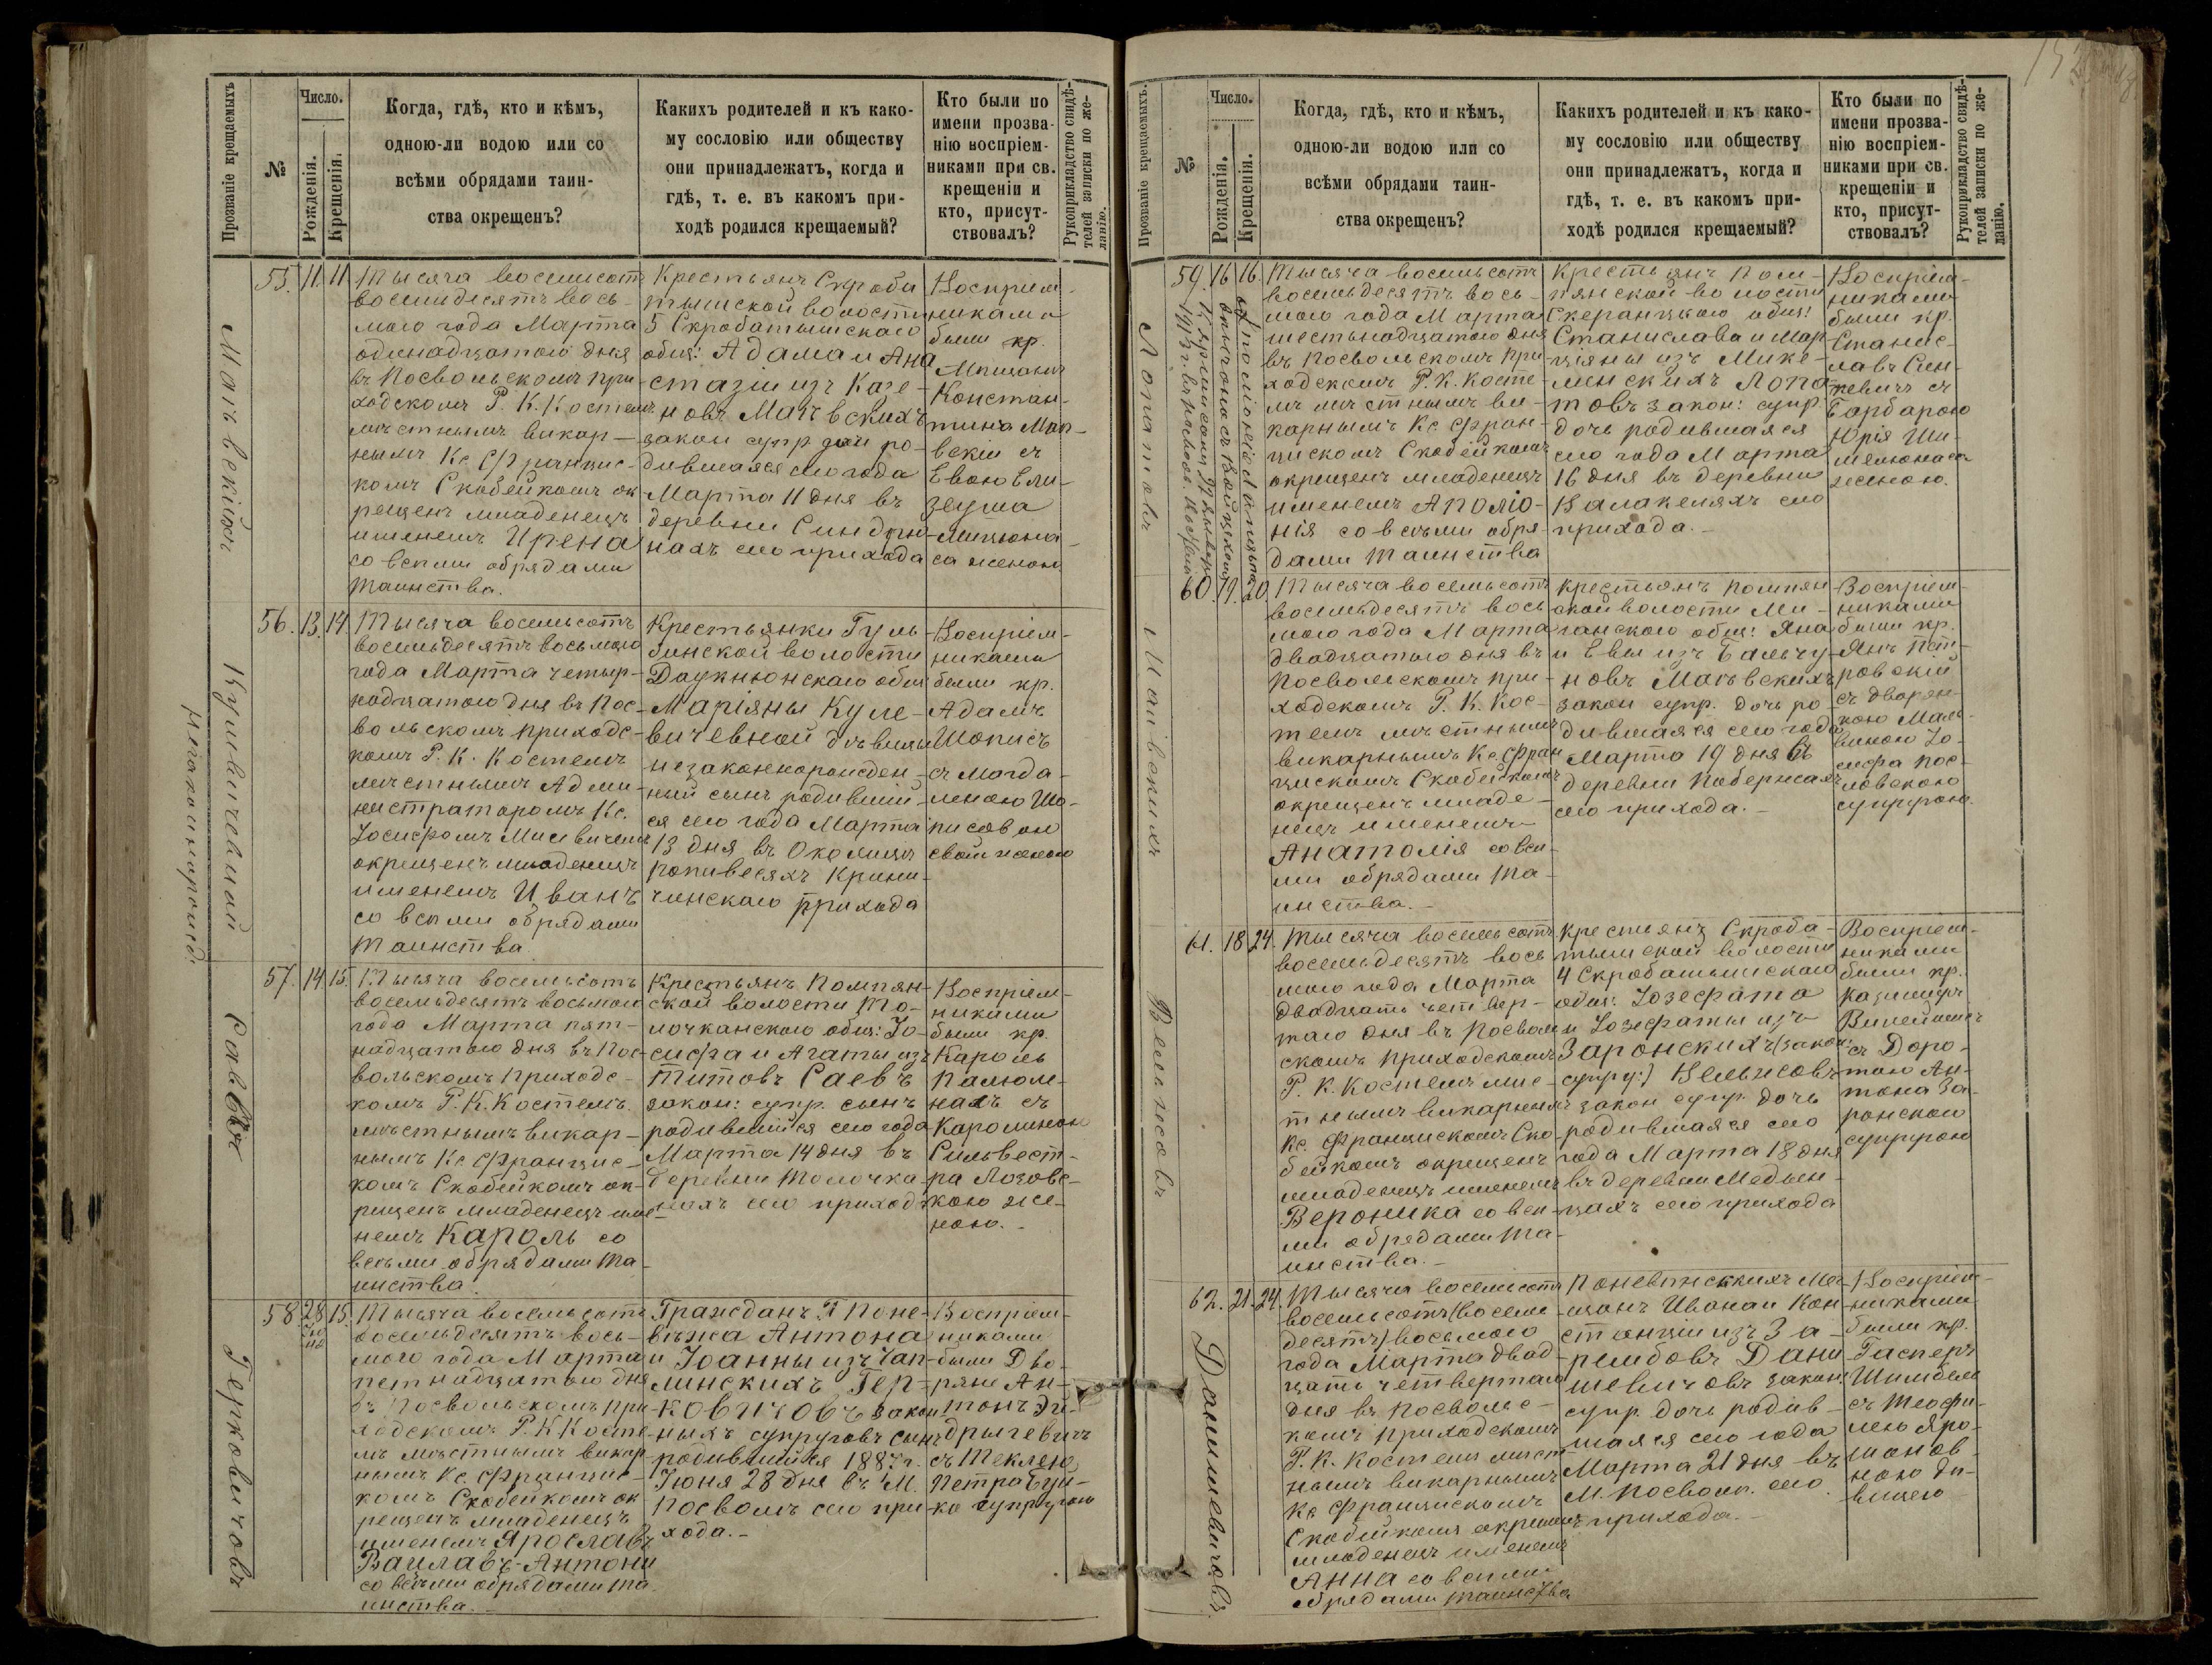 Прозваніе крещаемыхъ
№
Число.
Рожденія.
Крещенія.
Когда, гдѣ, кто и кѣмъ,
одною-ли водою или со
всѣми обрядами таин-
ства окрещенъ?
Какихъ родителей и къ како-
му сословію или обществу
они принадлежатъ, когда и
гдѣ, т. е. въ какомъ при-
ходѣ родился крещаемый?
Кто были по
имени прозва-
нію воспріем-
никами при св.
крещеніи и
кто, присут-
ствовалъ?
Рукоприкладство свидѣ-
телей записки по же-
ланію.
55. 11. 11.
Тысяча восемьсотъ
восемьдесятъ вось-
мого года Марта
одинадцатого дня
въ Посвольскомъ при-
ходскомъ Р. К. Костелѣ
мѣстнымъ викар-
нымъ Кс Францис-
комъ Скобейкомъ ок
рещенъ младенецъ
именемъ Ирена
со всѣми обрядами
таинства.
Крестьянъ Скроби
тышской волости
5 Скробатышскаго
общ: Адама и Ана
стазіи изъ
новъ
закон супр дочь ро-
дившаяся сего года
Марта 11 дня въ
деревни
нахъ сего прихода
Воспріем-
никами
были кр.
Констан-
тина
скій съ
Евою Ели-
зеуша
са женою
56. 13. 14.
Тысяча восемьсотъ
восемьдесятъ восьмого
года Марта четыр-
надцатого дня въ Пос-
вольскомъ приходс-
комъ Р. К. Костелѣ
мѣстнымъ Адми-
нистраторомъ Кс.
Іосифомъ Мисевичемъ
окрещенъ младенецъ
именемъ Иванъ
со всѣми обрядами
таинства
Крестьянки Гуль
бинской волости
Даукнюнскаго общ
Маріяны Куле-
вичевной дѣвицы
незаконнорожден-
ный сынъ родившій-
ся сего года Марта
13 дня въ Околицѣ
Попивесяхъ Крини-
чинскаго прихода
Воспріем-
никами
были кр.
Адамъ
Шописъ
съ Магда-
леною Шо-
писовою
своей женою
Кулевичевный
незаконнорожд.
57. 14. 15.
Тысяча восемьсотъ
восемьдесятъ восьмого
года Марта пят-
надцатого дня въ Пос-
вольскомъ приходс-
комъ Р. К. Костелѣ
мѣстнымъ викар-
нымъ Кс Францис-
комъ Скобейкомъ ок-
рещенъ младенецъ име
немъ Кароль со
всѣми обрядами та
инства
Крестьянъ Помпян-
ской волости То-
лочканскаго общ: Іо-
сифа и Агаты изъ
Титовъ Саевъ
закон: супр. сынъ
родившійся сего года
Марта 14 дня въ
деревни Толочка-
няхъ сего прихода
Воспріем-
никами
были кр.
Кароль
нахъ съ
Каролиною
Сильвест-
ра Лозовс-
кою же-
ною.
Саевъ
58. 28 15.
Тысяча восемьсотъ
восемьдесятъ вось-
мого года Марта
пятнадцатого дня
въ Посвольскомъ при
ходскомъ Р. К Косте-
лѣ мѣстнымъ викар
нымъ Кс. Францис-
комъ Скобейкомъ ок
рещенъ младенецъ
именемъ Ярославъ
Вацлавъ-Антони
со всѣми обрядами та
инства.
Гражданъ Г. Поне-
вѣжа Антона
и Іоанны изъ Чап-
линскихъ Гер-
ковичовъ закон
ныхъ супруговъ сынъ
родившійся 1887 г.
Іюня 28 дня въ М.
Посволѣ сего при
хода.
Воспріем-
никами
были Дво-
ряне Ан-
тонъ Эн-
дрыгевичъ
съ Теклею
Петра Буй-
ко супругою
Герковичовъ
152
Прозваніе крещаемыхъ.
№
Число.
Рожденія.
Крещенія.
Когда, гдѣ, кто и кѣмъ,
одною-ли водою или со
всѣми обрядами таин-
ства окрещенъ?
Какихъ родителей и къ како-
му сословію или обществу
они принадлежатъ, когда и
гдѣ, т. е. въ какомъ при-
ходѣ родился крещаемый?
Кто были по
имени прозва-
нію воспріем-
никами при св.
крещеніи и
кто, присут-
ствовалъ?
Рукоприкладство свидѣ-
телей записки по же-
ланію.
59. 16 16.
Тысяча восемьсотъ
восемьдесятъ вось-
мого года Марта
шестьнадцатого дня
въ Посвольскомъ при
ходскомъ Р. К. Косте-
лѣ мѣстнымъ ви-
карнымъ Кс Фран-
цискомъ Скобейкомъ
окрещенъ младенецъ
именемъ Аполіо-
нія со всѣми обря-
дами таинства
Крестьянъ Пом-
пянской волости
Скеранцкого общ:
Станислава и Мар
ціяны изъ Мике-
ленскихъ Лопа
товъ закон: супр
дочь родившаяся
сего года Марта
16 дня въ деревни
Валакеляхъ сего
прихода.
Воспріем-
никами
были кр.
Станис-
лавъ Син-
кевичъ съ
Барбарою
Юрія Ши-
женою.
Лопатовъ
60. 19. 20.
Тысяча восемьсотъ
восемьдесятъ вось
мого года Марта
двадцатого дня въ
Посвольскомъ при-
ходскомъ Р. К. Кос-
телѣ мѣстнымъ
викарнымъ Кс Фран
цискомъ Скобейкомъ
окрещенъ младе-
нецъ именемъ
Анатолія со всѣ-
ми обрядами та-
инства.
Крестьянъ Помпян
ской волости Ми-
ганскаго общ: Яна
и Евы изъ Бальчу-
новъ
закон супр. дочь ро
дившаяся сего года
Марта 19 дня въ
деревни Побержахъ
сего прихода.
Воспріем-
никами
были кр.
Янъ Пет-
ровскій
съ дворян-
кою Маль
виною Іо-
сифа Пос-
ловскою
супругою.
61. 18 24.
Тысяча восемьсотъ
восемьдесятъ вось
мого года Марта
двадцать четвер-
таго дня въ Посволь
скомъ приходскомъ
Р. К. Костелѣ мѣс-
тнымъ викарнымъ
Кс. Францискомъ Ско
бейкомъ окрещенъ
младенецъ именемъ
Вероника со всѣ-
ми обрядами та-
инства.
Крестьянъ Скроба-
тышской волости
4 Скробатышскаго
общ: Іозефата
и Іозефаты изъ
Заронскихъ (закон:
супру:) Вельжсовъ
закон супр. дочь
родившаяся сего
года Марта 18 дня
въ деревни Медын-
цахъ сего прихода
Воспріем-
никами
были кр.
Казимиръ
съ Доро-
тою Ан-
тона За-
ронскою
супругою
62. 21. 24.
Тысяча восемьсотъ
восемьсотъ (восемь
десятъ) восьмого
года Марта двад
цать четвертаго
дня въ Посвольс-
комъ приходскомъ
Р. К. Костелѣ мѣст
нымъ викарнымъ
Кс Францискомъ
Скобейкомъ окрещенъ
младенецъ именемъ
Анна со всѣми
обрядами таинства
Поневѣжскихъ Мѣ-
щанъ Ивана и Кон
станціи изъ За-
рембовъ Дани
шевичовъ закон:
супр. дочь родив-
шаяся сего года
Марта 21 дня въ
М. Посволѣ. сего
прихода.
Воспріем-
никами
были кр.
Гасперъ
съ Теофи-
лею Яро-
шонов-
ною дѣ-
вицею
Данишевичовъ